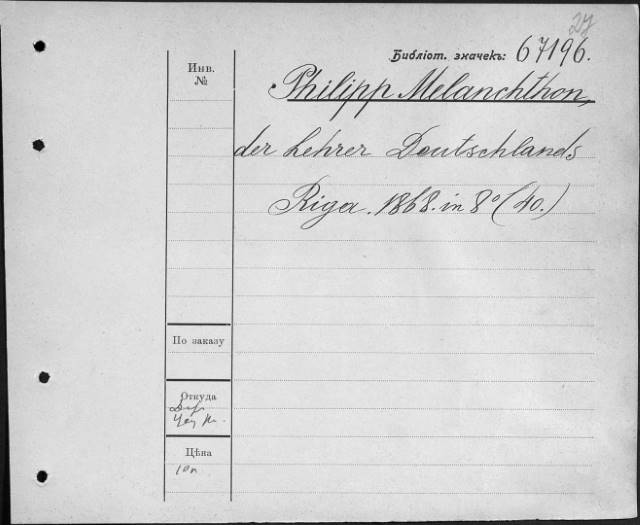 24
Библіот. значекъ: 67196.
Инв.
№
Philipp Melanchthon,
der Lehrer Deutschlands
Riga. 1868. in 8° (40.)
По заказу
Откуда
Цѣна